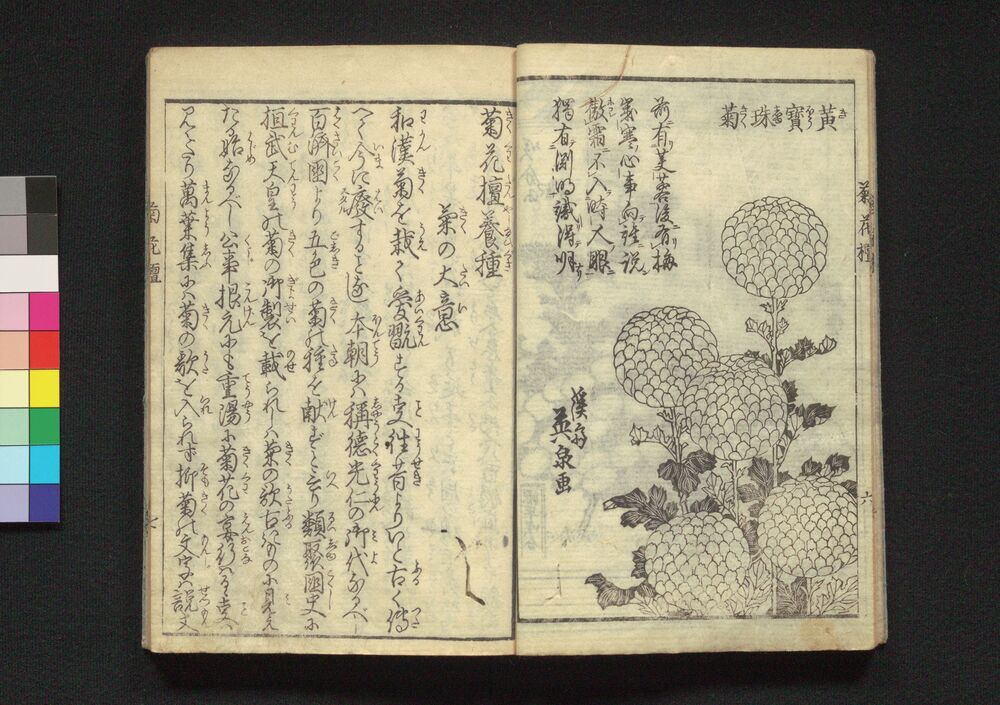 黄寶珠菊
前有芙蓉後有梅
歳寒心事向誰説
傲霜不入時人眼
獨有淵明識得歸
溪斎
英泉画
菊花檀
六
菊花檀養種
菊の大意
和漢菊を栽て愛翫する事往昔よりいと古く傳
へて今に廢することなし本朝にハ稱徳光仁の御代なるべし
百済國より五色の菊の種を献ずと云り類聚國史に
桓武天皇の菊の御製を載られしハ菊の歌古きものに見え
た始なるべし公事根元にも重陽に菊花の宴行るゝ事
見えたり萬葉集にハ菊の歌を入られず抑菊の文字説文
菊花檀
七